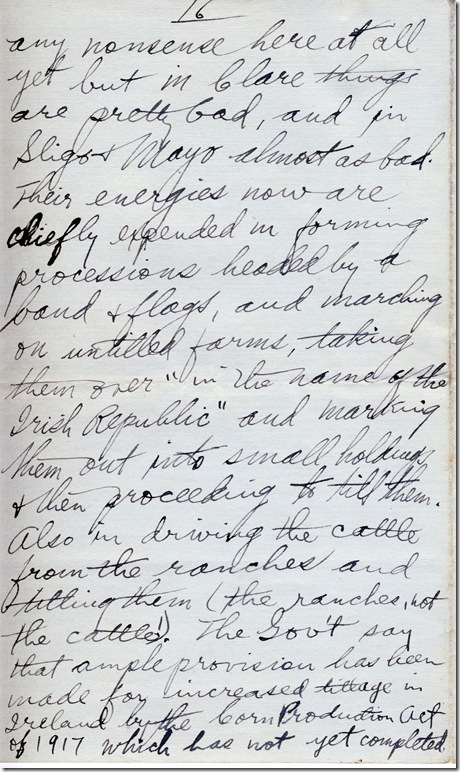 16
any nonsense here at all
yet but in Clare things
are pretty bad, and in
Sligo & Mayo almost as bad.
Their energies now are
chiefly expended in forming
processions headed by a
band & flags, and marching
on untilled farms, taking
them over "in the name of the
Irish Republic" and marking
them out into small holdings
& then proceeding to till them.
Also in driving the cattle
from the ranches and
tilling them (the ranches, not
the cattle!). The Gov't say
that ample provision has been
made for increased tillage in
Ireland by the Corn Production Act
of 1917 which has not yet completed